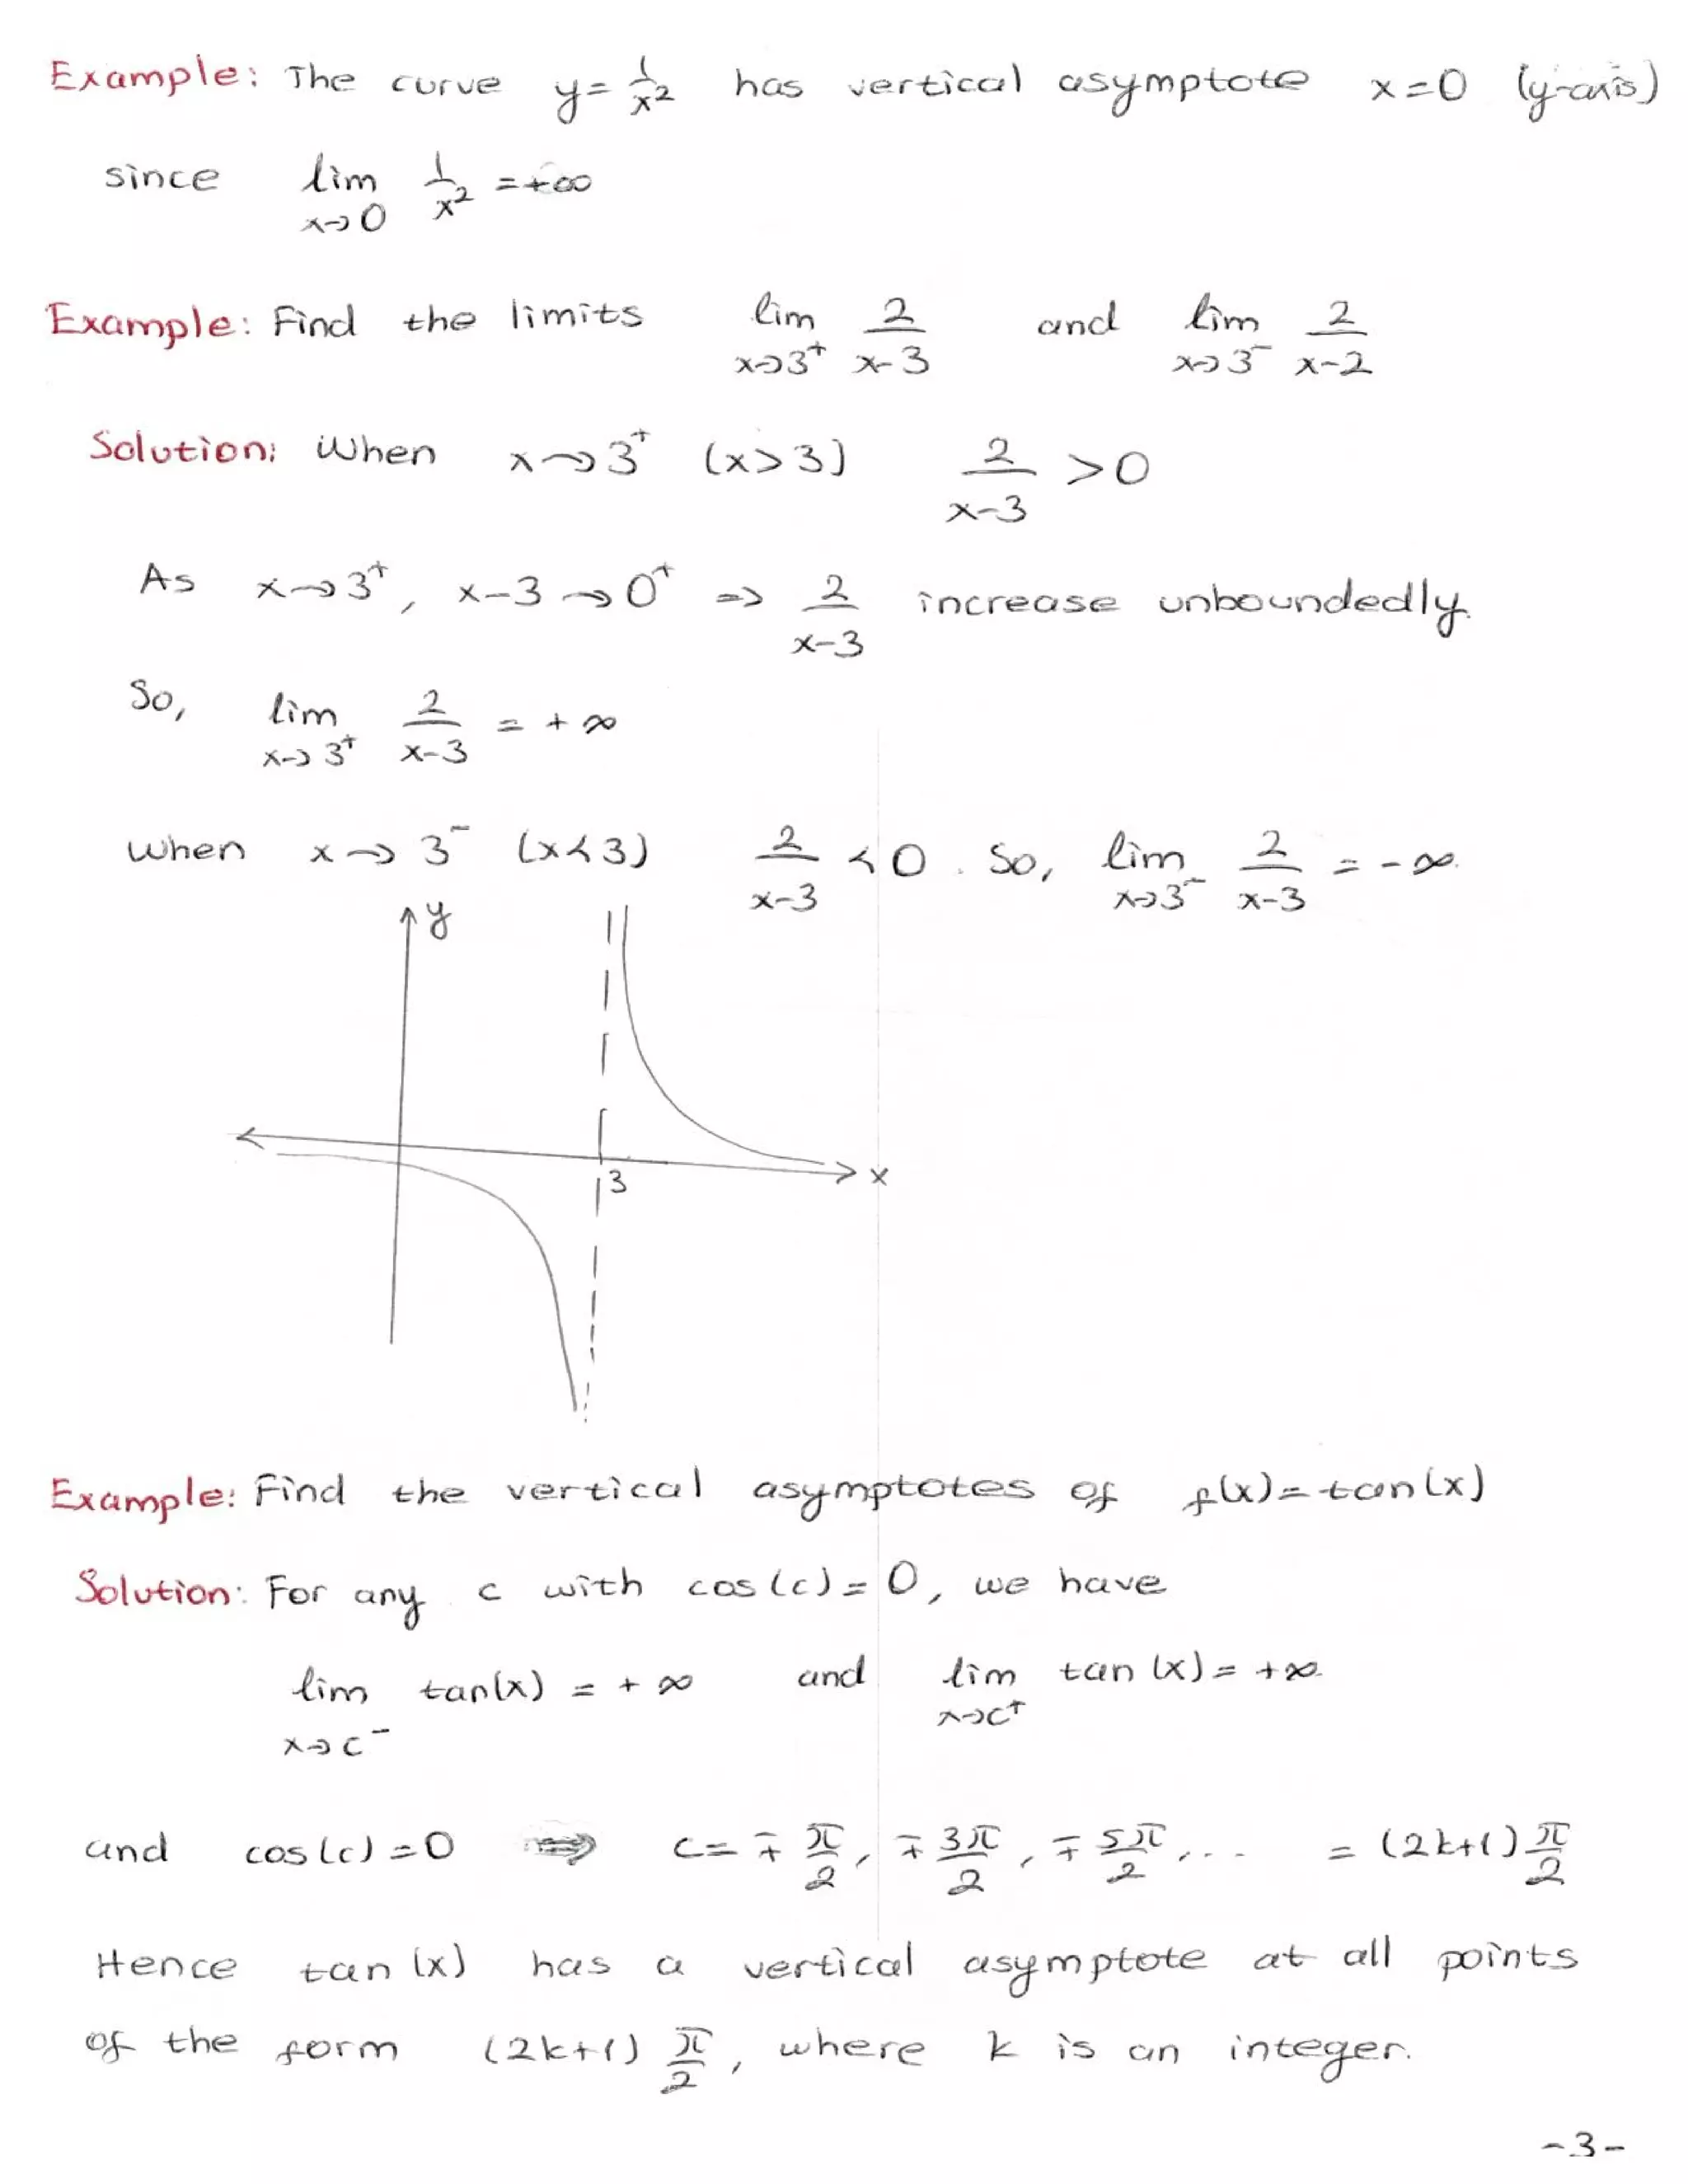 Example: The curve y = 1/x² has vertical asymptote x=0 (y-axis)
since lim x→0 1/x² = +∞
Example: Find the limits lim x→3⁺ 2/(x-3) and lim x→3⁻ 2/(x-2)
Solution: When x→3⁺ (x>3) 2/(x-3) >0
As x→3⁺, x-3→0⁺ => 2/(x-3) increase unboundedly.
So, lim x→3⁺ 2/(x-3) = +∞
When x→3⁻ (x<3) 2/(x-3) <0. So, lim x→3⁻ 2/(x-3) = -∞.
y
x
3
Example: Find the vertical asymptotes of f(x)=tan(x)
Solution: For any c with cos(c)=0, we have
lim x→c⁻ tan(x) = +∞ and lim x→c⁺ tan(x) = +∞.
and cos(c)=0 ⟹ c= ∓ π/2, ∓ 3π/2, ∓ 5π/2, ... = (2k+1) π/2
Hence tan(x) has a vertical asymptote at all points
of the form (2k+1) π/2, where k is an integer.
-3-